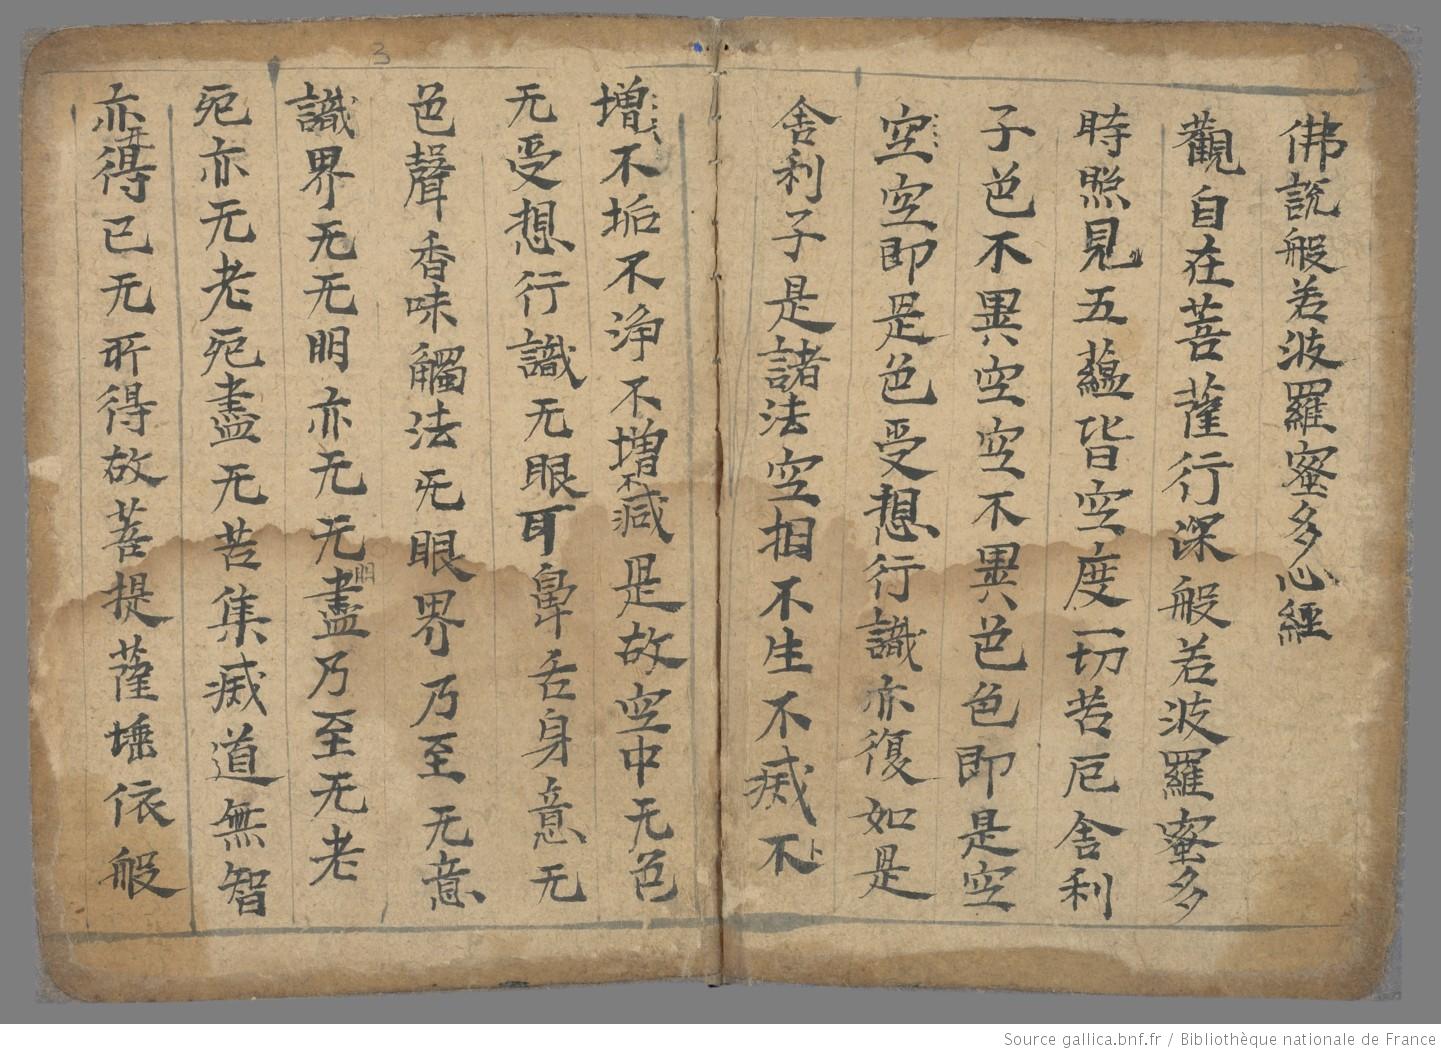 佛説般若波羅蜜多心經
觀自在菩薩行深般若波羅蜜多
時照見五蘊皆空度一切苦厄舍利
子色不異空空不異色色即是空
空空即是色受想行識亦復如是
舍利子是諸法空相不生不滅不
增不垢不淨不增不減是故空中无色
无受想行識无眼耳鼻舌身意无
色聲香味觸法无眼界乃至无意
識界无无明亦无无明盡乃至无老
死亦无老死盡无苦集滅道無智
亦无得已无所得故菩提薩埵依般
3
Source gallica.bnf.fr / Bibliothèque nationale de France